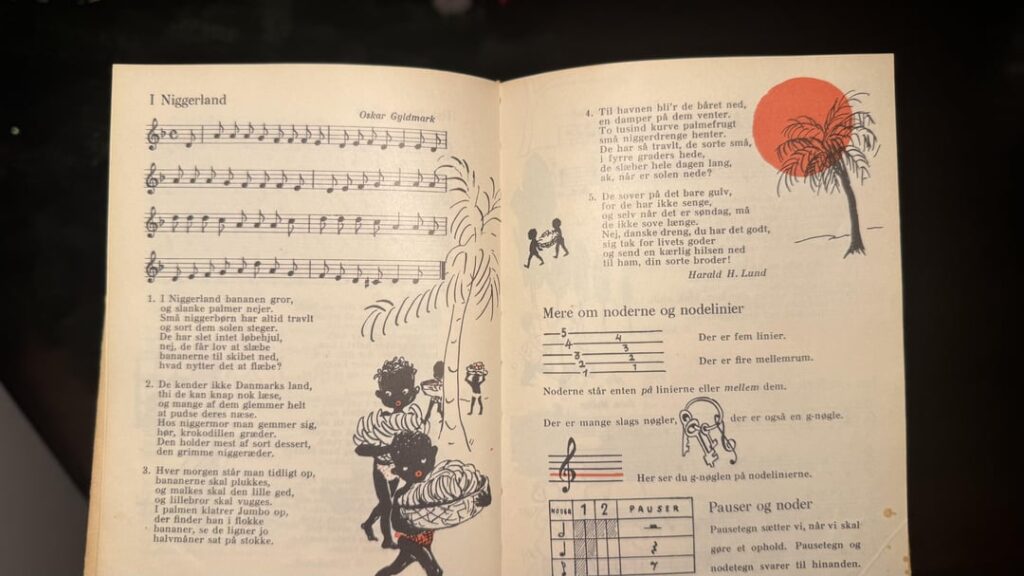 I Niggerland
Oskar Gyldmark
1. I Niggerland bananen gror,
og slanke palmer nejer.
Små niggerbørn har altid travlt
og sort dem solen steger.
De har slet intet løbehjul,
nej, de får lov at slæbe
bananerne til skibet ned,
hvad nytter det at flæbe?
2. De kender ikke Danmarks land,
thi de kan knap nok læse,
og mange af dem glemmer helt
at pudse deres næse.
Hos niggermor man gemmer sig,
hør, krokodillen græder.
Den holder mest af sort dessert,
den grimme niggeræder.
3. Hver morgen står man tidligt op,
bananerne skal plukkes,
og malkes skal den lille ged,
og lillebror skal vugges.
I palmen klatrer Jumbo op,
der finder han i flokke
bananer, se de ligner jo
halvmåner sat på stokke.
4. Til havnen bli'r de båret ned,
en damper på dem venter.
To tusind kurve palmefrugt
små niggerdrenge henter.
De har så travlt, de sorte små,
i fyrre graders hede,
de slæber hele dagen lang,
ak, når er solen nede?
5. De sover på det bare gulv,
for de har ikke senge,
og selv når det er søndag, må
de ikke sove længe.
Nej, danske dreng, du har det godt,
sig tak for livets goder
og send en kærlig hilsen ned
til ham, din sorte broder!
Harald H. Lund
Mere om noderne og nodelinier
5 4 3 2 1
4 3 2 1
Der er fem linier.
Der er fire mellemrum.
Noderne står enten på linierne eller mellem dem.
Der er mange slags nøgler, der er også en g-nøgle.
Her ser du g-nøglen på nodelinierne.
NODER 1 2 PAUSER
Pauser og noder
Pausetegn sætter vi, når vi skal
gøre et ophold. Pausetegn og
nodetegn svarer til hinanden.